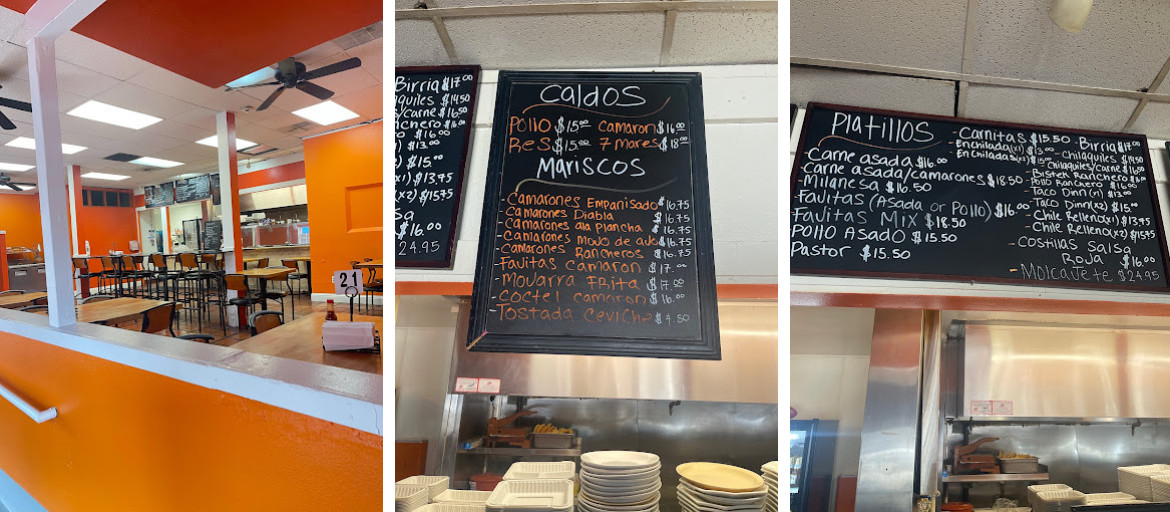 21
Birria $17.00
aquiles $14.50
s/carne $16.50
nchero $16.00
$16.00
$13.00
$15.00
$13.75
(x2) $15.75
Sa
$16.00
24.95
Caldos
Pollo $15.00 Camaron $16.00
Res $15.00 7 mares $18.00
Mariscos
-Camarones Empanisado $16.75
-Camarones Diabla $16.75
-Camarones ala plancha $16.75
-Camarones mojo de ajo $16.75
-Camarones Rancheros $16.75
-Fajitas Camaron $17.00
-Mojarra Frita $17.00
-Coctel camaron $16.00
-Tostada Ceviche $4.50
Platillos
-Carne asada $16.00
-Carne asada/camarones $18.50
-Milanesa $16.50
-Fajitas (Asada or Pollo) $16.00
-Fajitas Mix $18.50
Pollo Asado $15.50
Pastor $15.50
-Carnitas $15.50
-Enchilada(x1) $13.00
-Enchiladas(x2) $15.00
Birria $17.00
-Chilaquiles $14.50
Chilaquiles/carne $16.50
-Bistek Ranchero $16.00
-Pollo Ranchero $16.00
-Taco Dinn(x1) $13.00
-Taco Dinn(x2) $15.00
-Chile Relleno(x1) $13.75
-Chile Relleno(x2) $15.75
-Costilas Salsa
Roja $16.00
-Molcajete $24.95